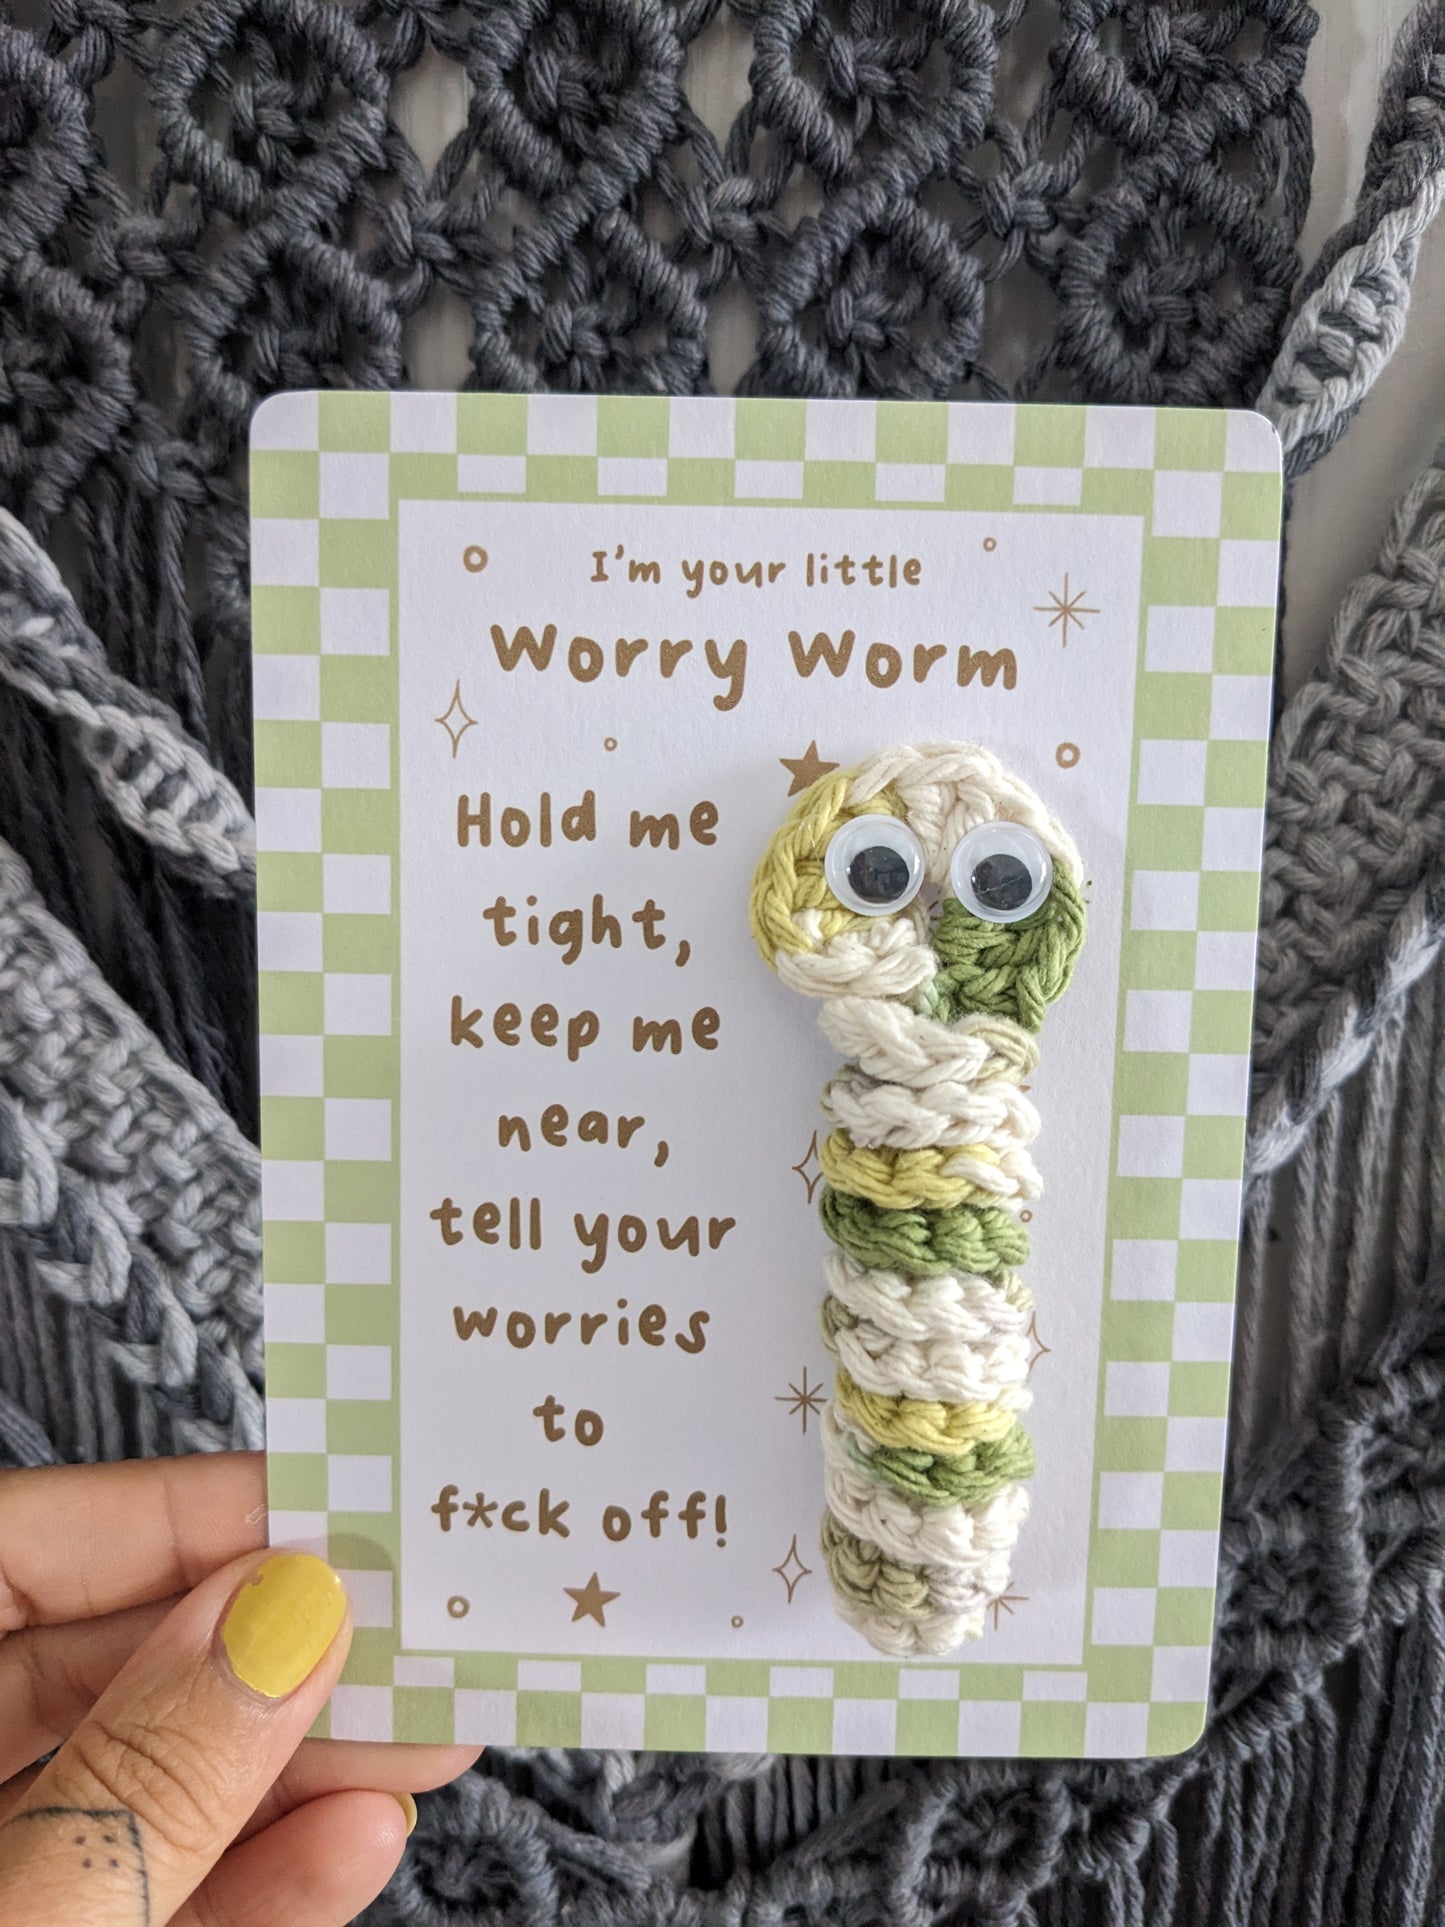 I'm your little
Worry Worm
Hold me
tight,
keep me
near,
tell your
worries
to
f*ck off!